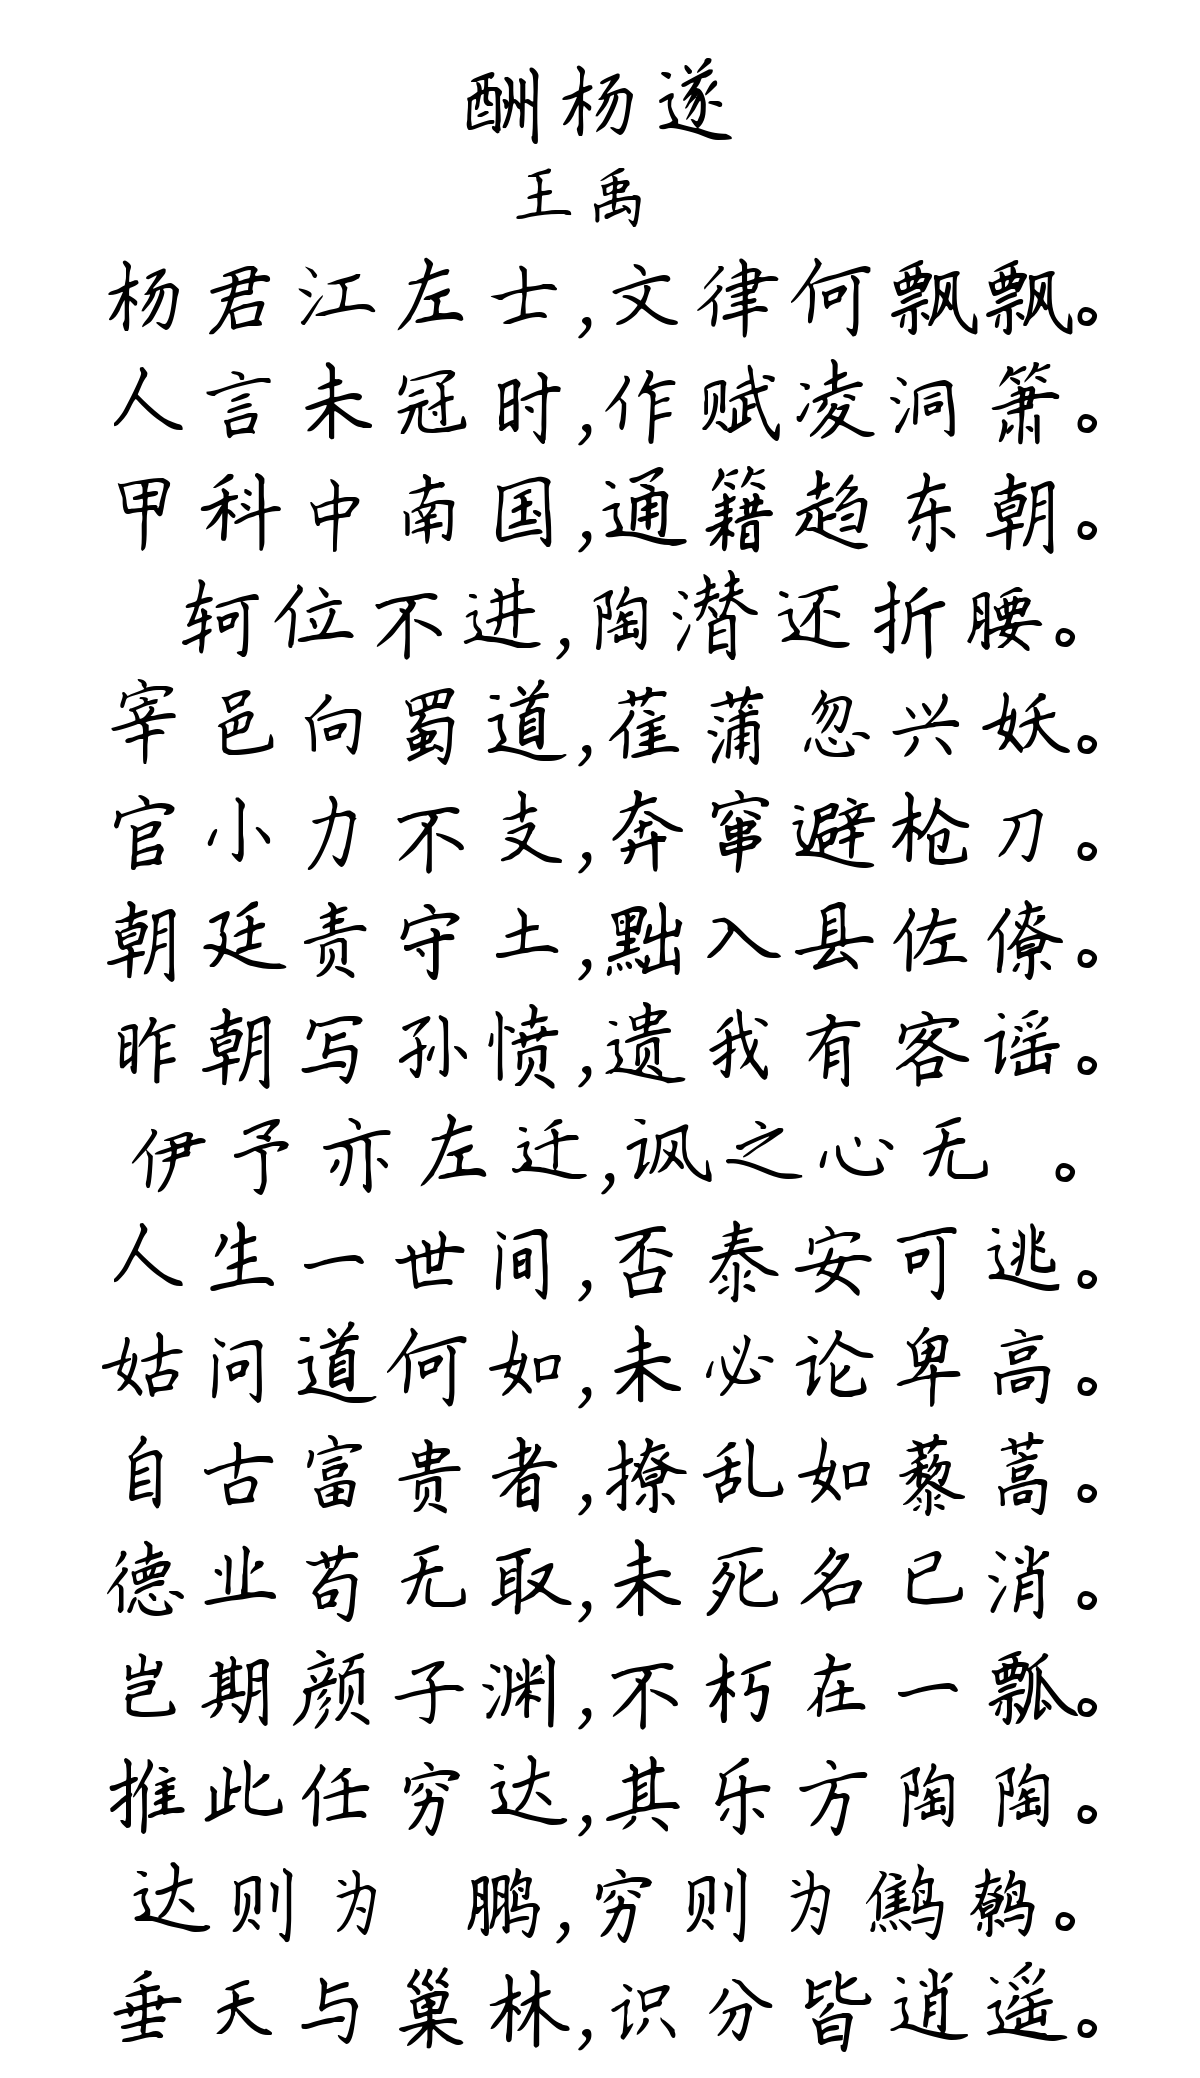 酬杨遂
王禹
杨君江左士,文律何飘飘。
人言未冠时,作赋凌洞箫。
甲科中南国,通籍趋东朝。
轲位不进,陶潜还折腰。
宰邑向蜀道,萑蒲忽兴妖。
官小力不支,奔窜避枪刀。
朝廷责守土,黜入县佐僚。
昨朝写孙愤,遗我有客谣。
伊予亦左迁,讽之心无 。
人生一世间,否泰安可逃。
姑问道何如,未必论卑高。
自古富贵者,撩乱如藜蒿。
德业苟无取,未死名已消。
岂期颜子渊,不朽在一瓢。
推此任穷达,其乐方陶陶。
达则为 鹏,穷则为鹪鹩。
垂天与巢林,识分皆逍遥。